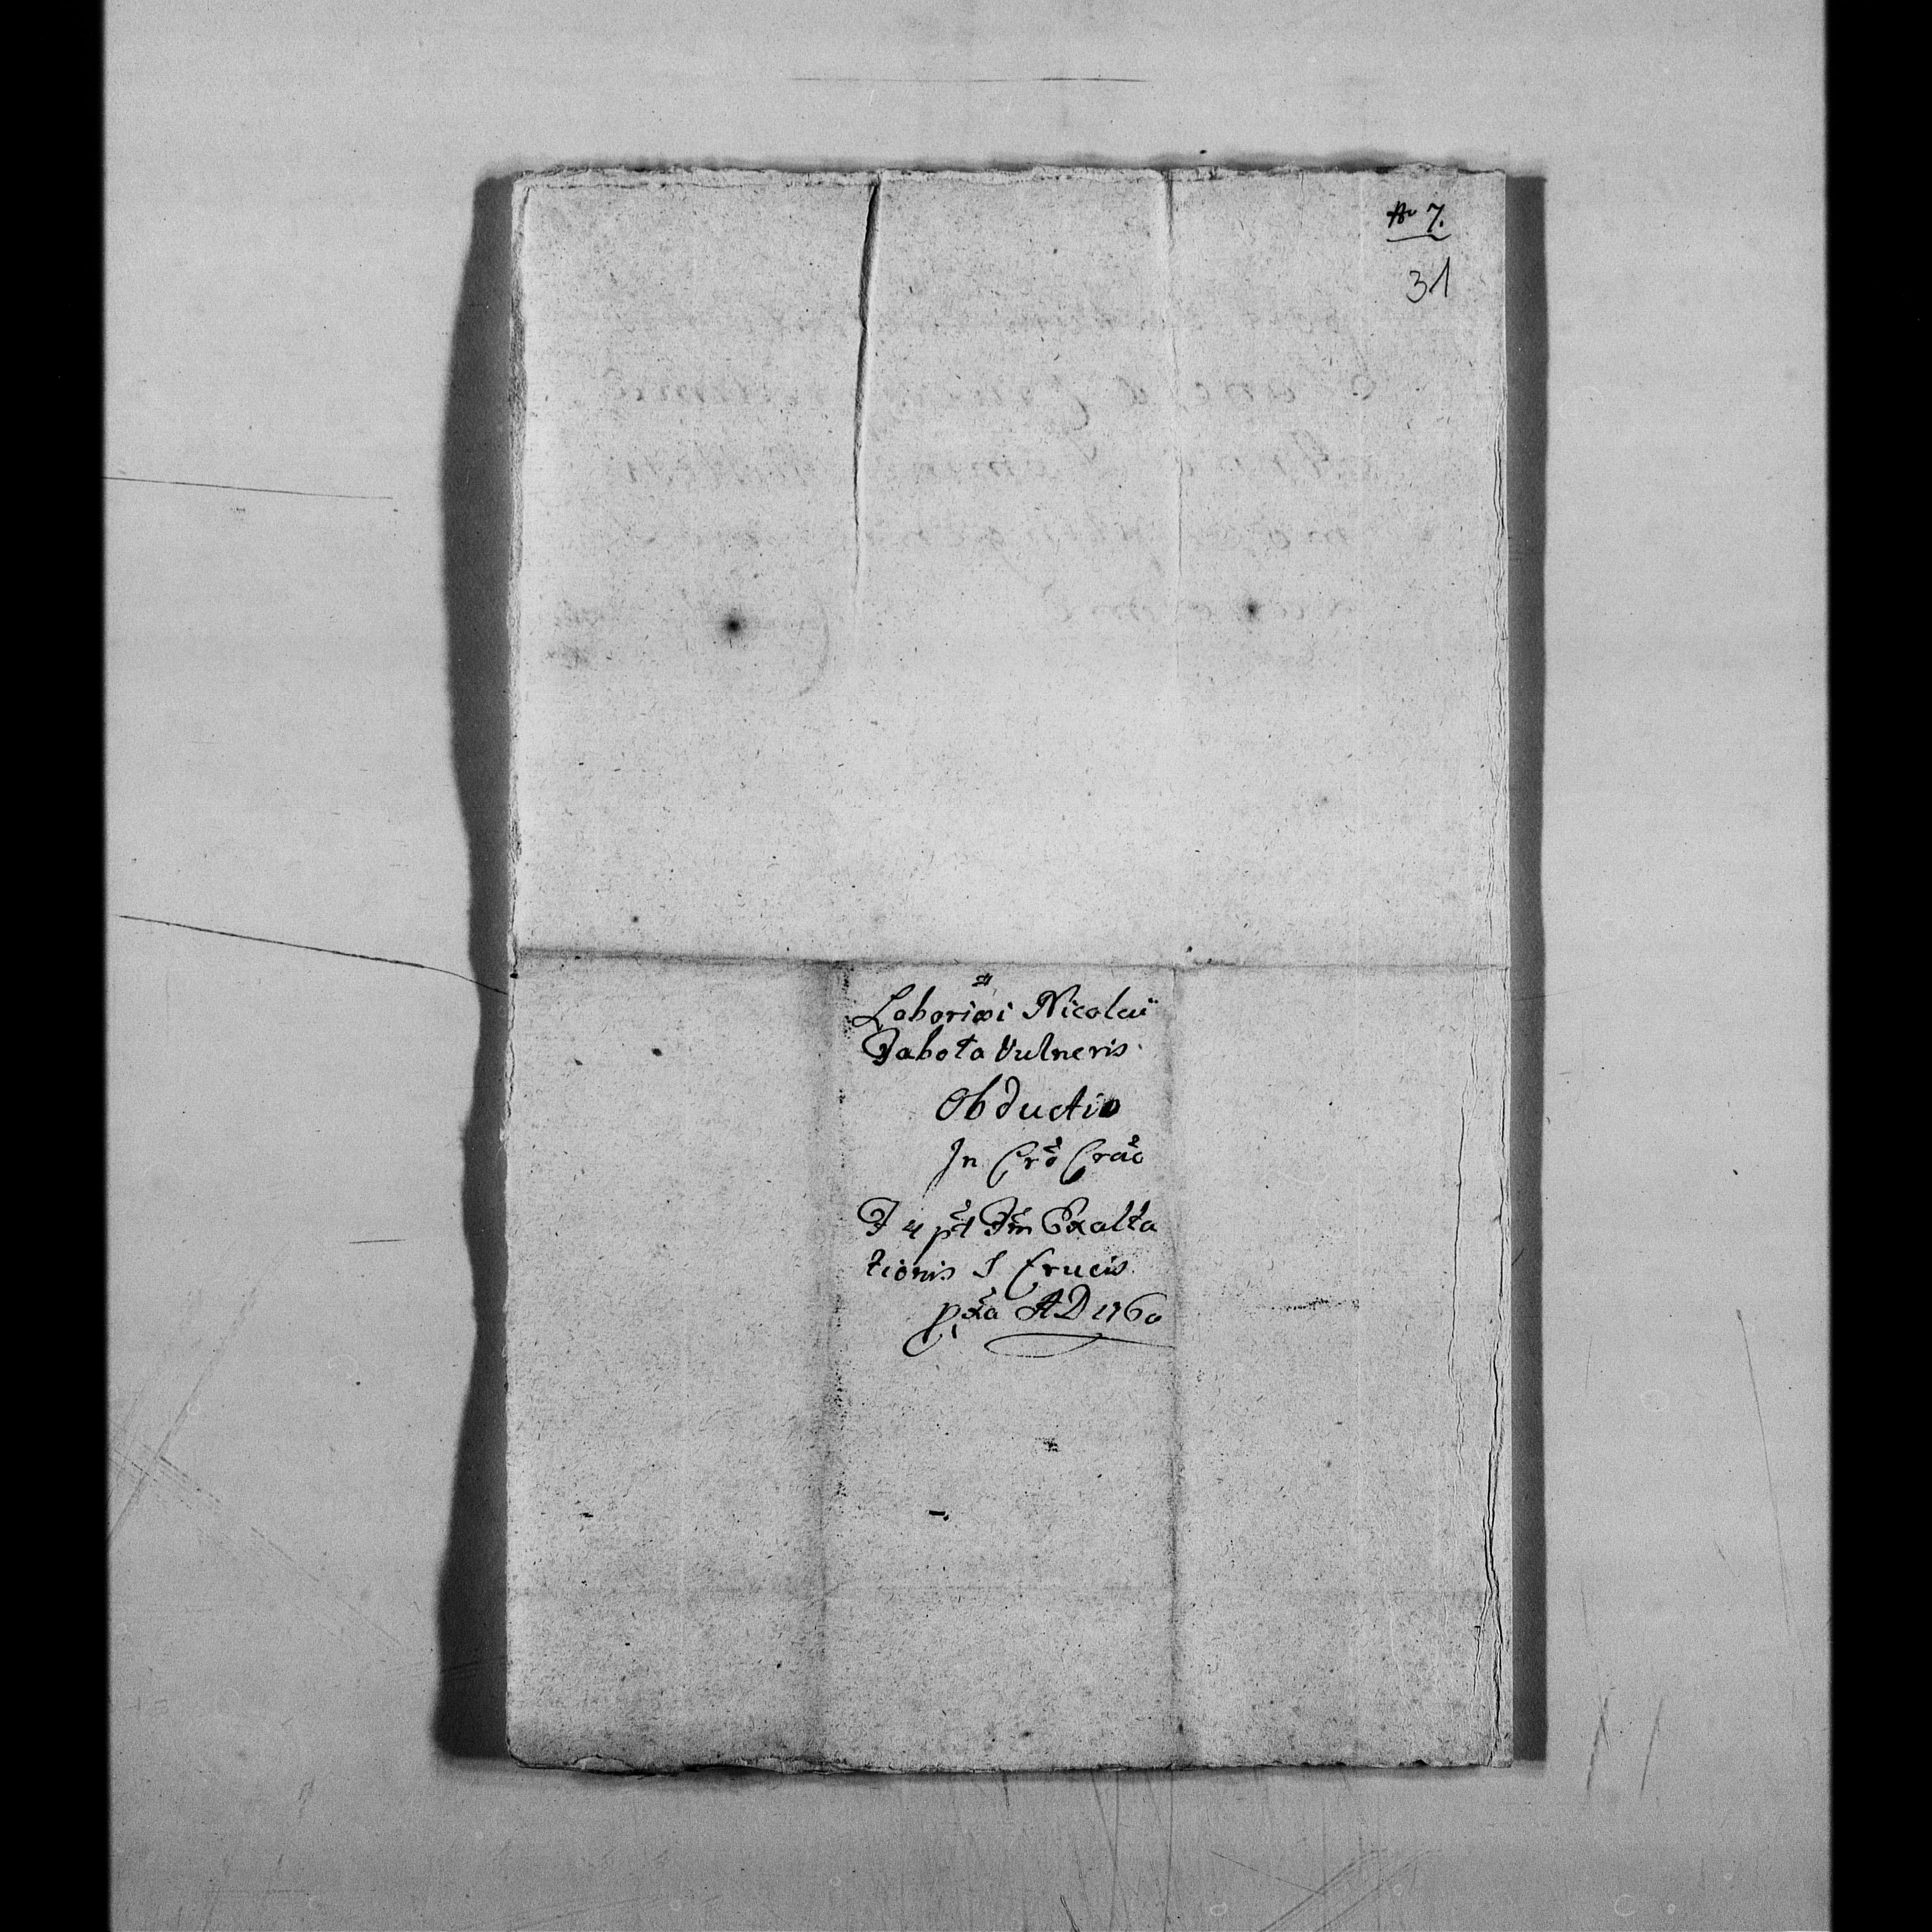 No 7.
31
Laboriosi Nicolai
Fabota Vulneris
Obductio
In Crō Crāc
F 4 pt Fm Exalta
tionis S Crucis
pxa AD 1760